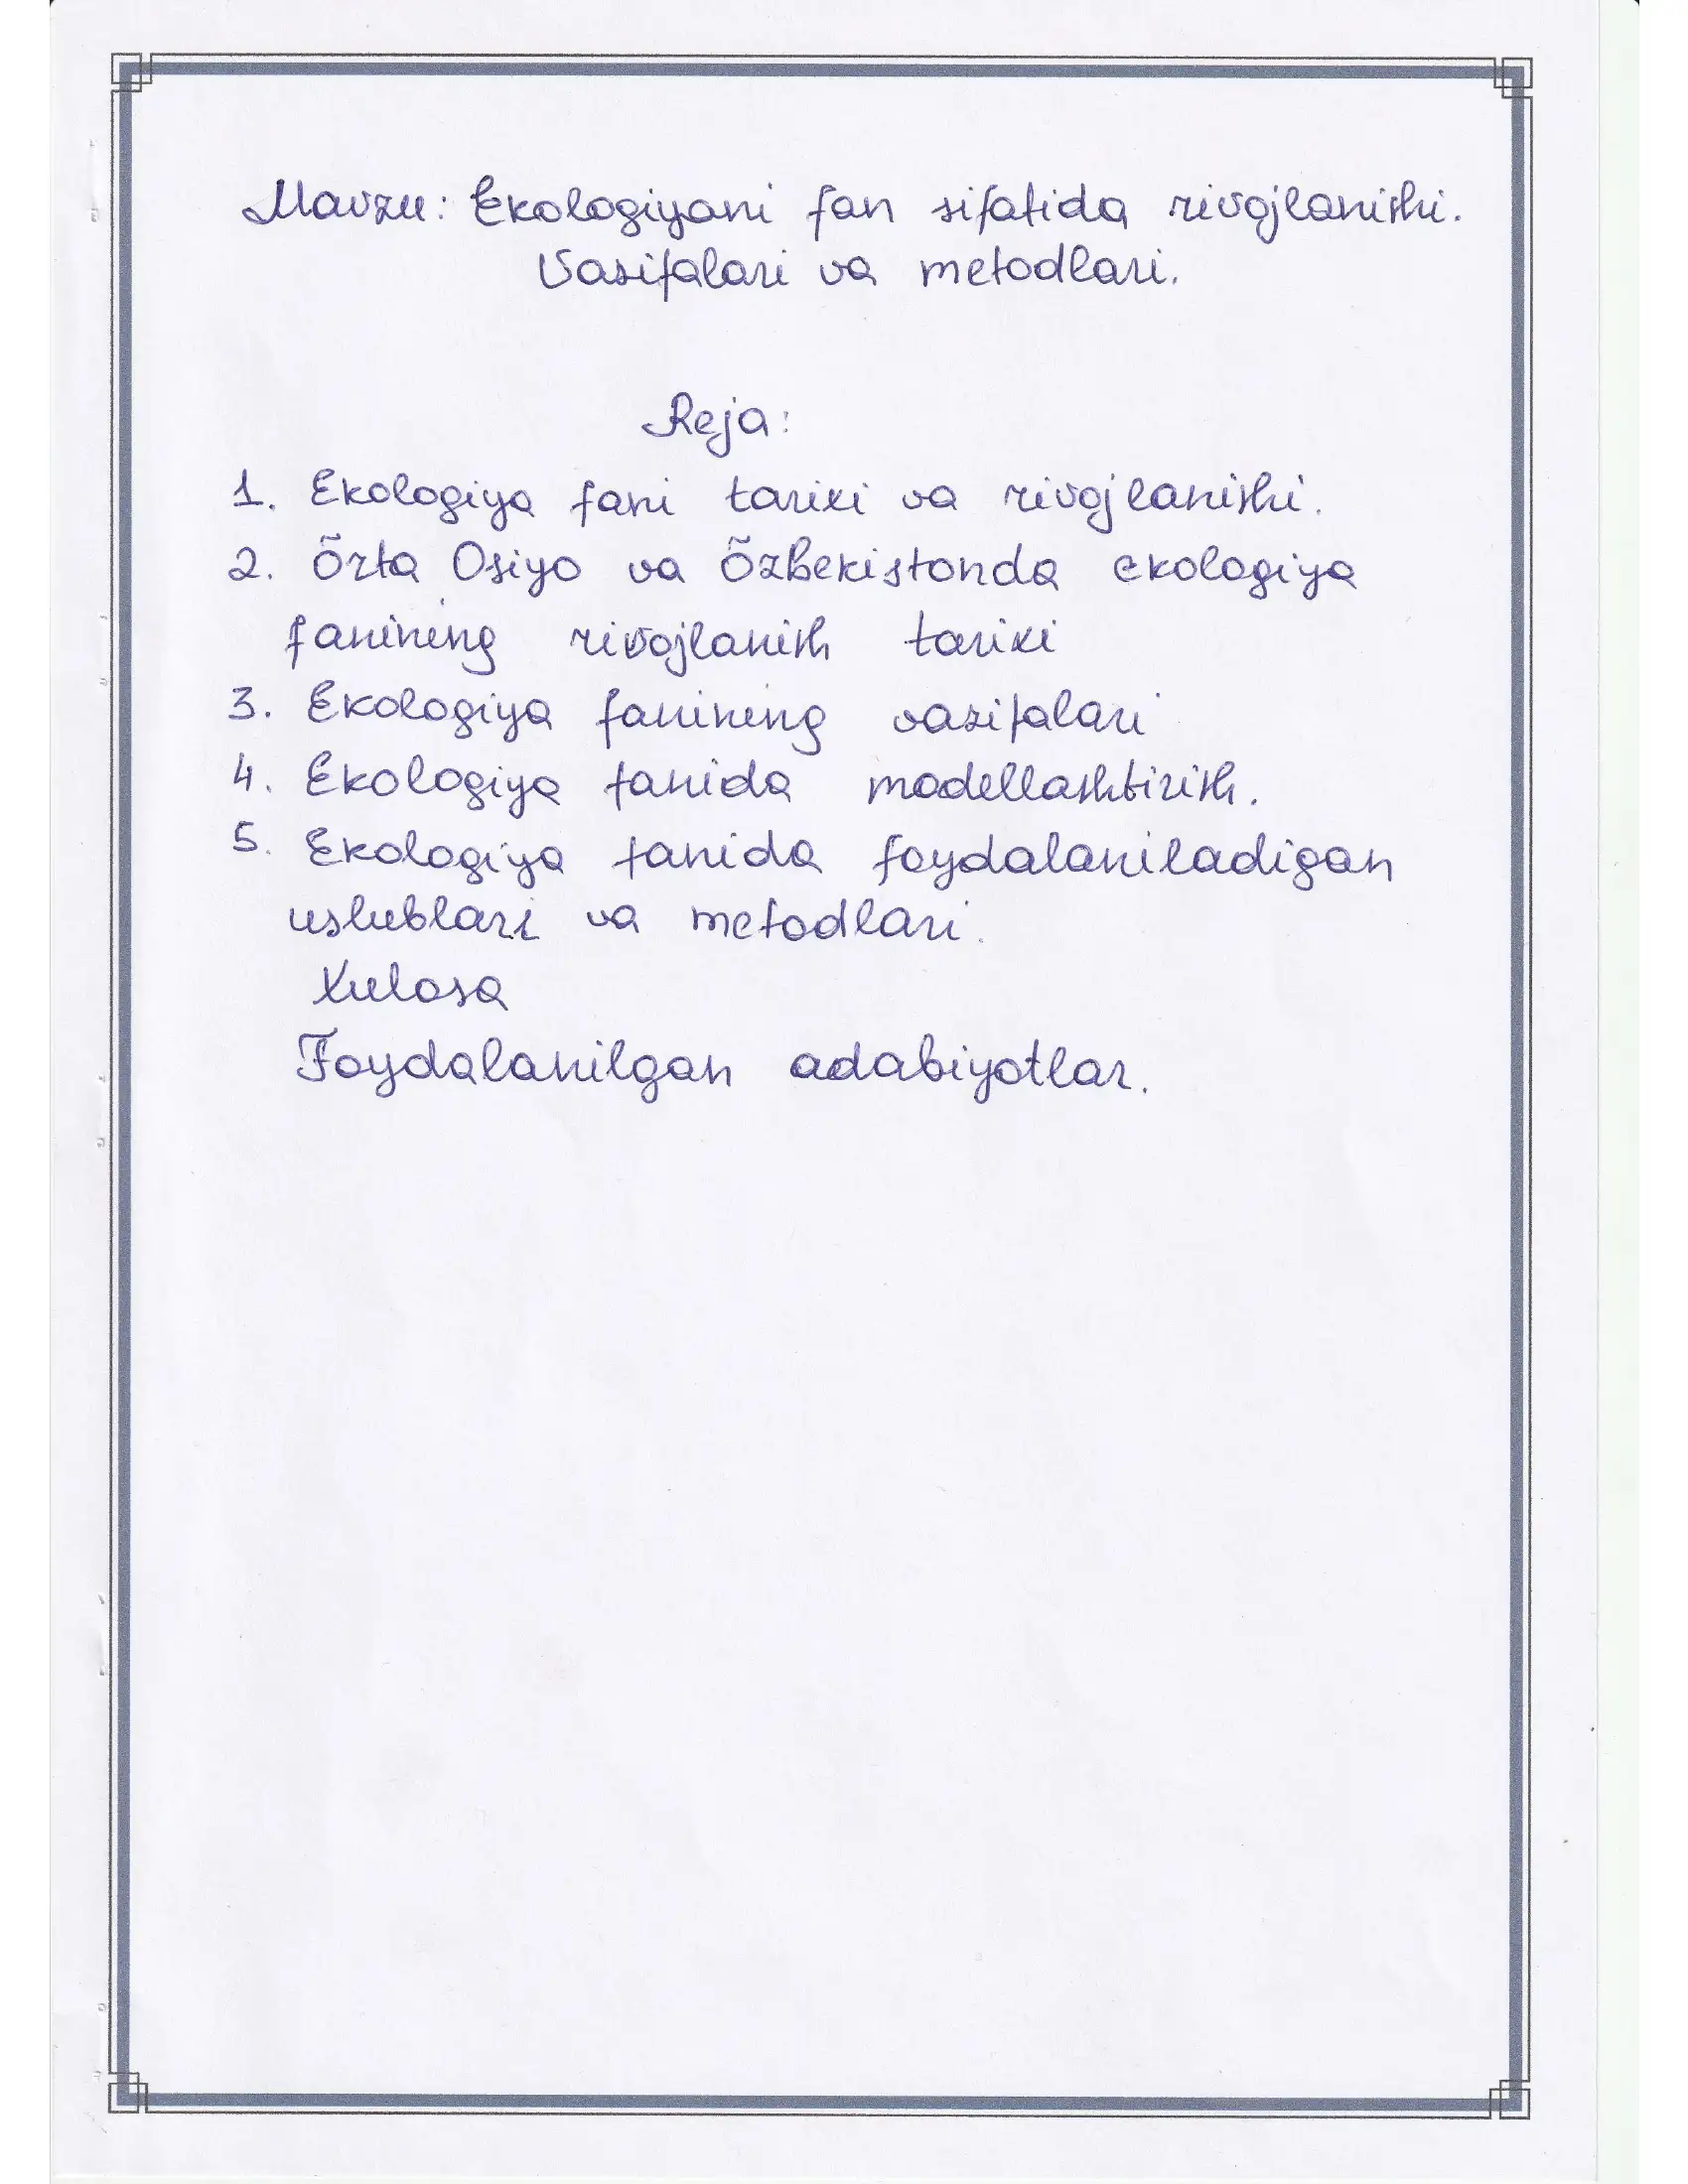 Mavzu: Ekologiyani fan sifatida rivojlanishi.
Vazifalari va metodlari.
Reja:
1. Ekologiya fani tarixi va rivojlanishi.
2. Õrta Osiyo va Õzbekistonda ekologiya
fanining rivojlanish tarixi
3. Ekologiya fanining vazifalari
4. Ekologiya fanida modellashtirish.
5. Ekologiya fanida foydalaniladigan
uslublari va metodlari.
Xulosa
Foydalanilgan adabiyotlar.